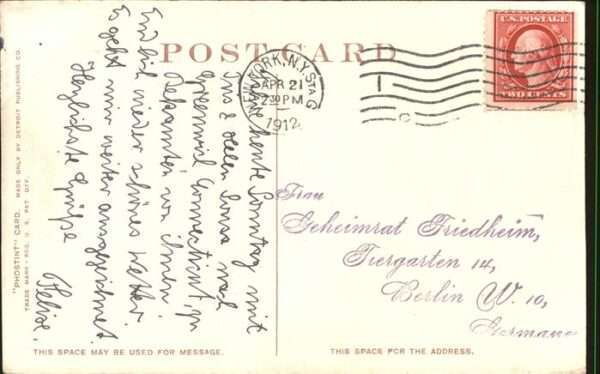 POST CARD
U.S. POSTAGE
TWO CENTS
NEW YORK, N.Y. STA G
APR 21
2 30 PM
1912
1
C
heute Sonntag mit
nach
Greenwich Connecticut, zu
von ihnen.
Endlich wieder schönes Wetter.
Es geht mir weiter ausgezeichnet
Herzlichste Grüße
Frau
Geheimrat Friedheim,
Tiergarten 14,
Berlin W. 10,
Germany
"PHOSTINT" CARD. MADE ONLY BY DETROIT PUBLISHING CO.
TRADE MARK - REG. U. S. PAT. OFF.
THIS SPACE MAY BE USED FOR MESSAGE.
THIS SPACE FOR THE ADDRESS.